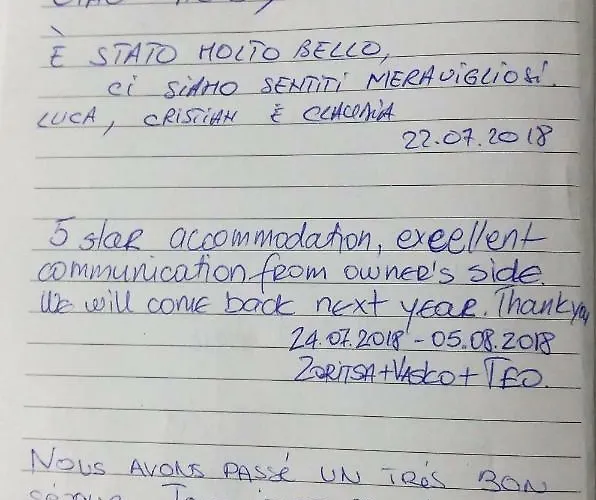 È STATO MOLTO BELLO,
CI SIAMO SENTITI MERAVIGLIOSI.
LUCA, CRISTIAN E CLAUDIA
22.07.2018
5 star accommodation, exellent
communication from owner's side.
We will come back next year. Thank you
24.07.2018 - 05.08.2018
ZORITSA + VASCO + TEO.
NOUS AVONS PASSÉ UN TRÉS BON